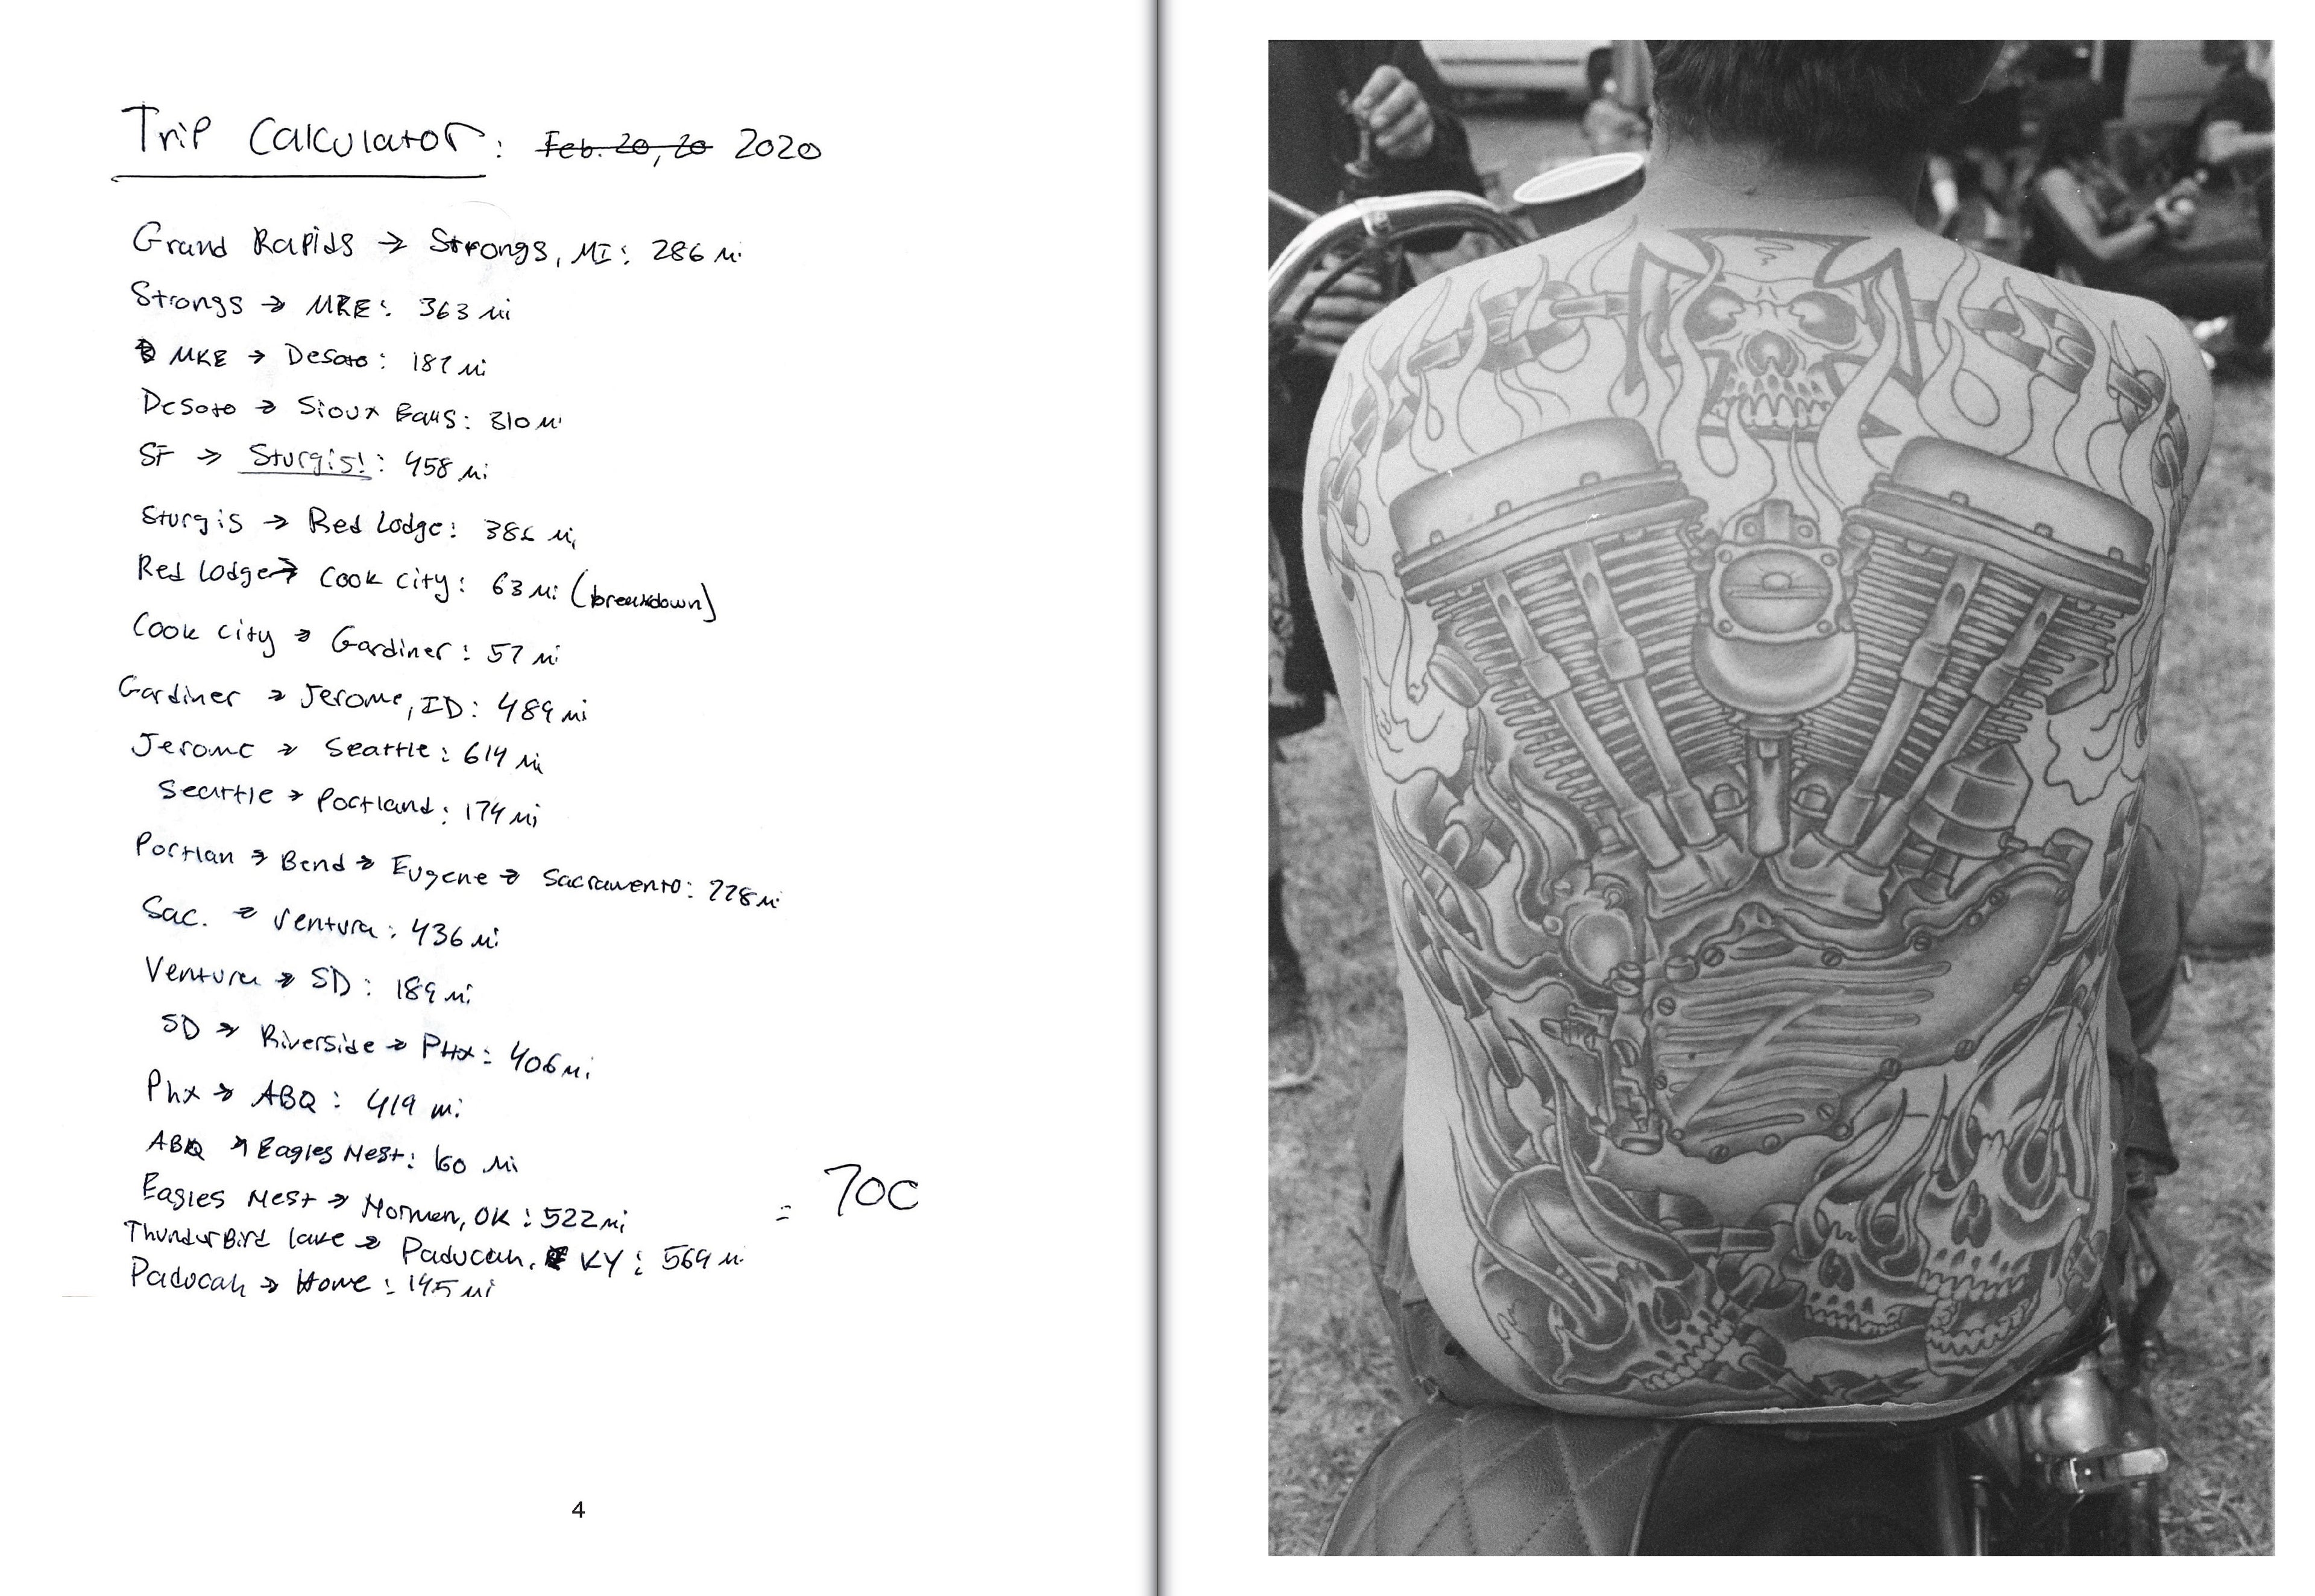 Trip Calculator: Feb. 20, 20 2020
Grand Rapids → Strongs, MI: 286 mi
Strongs → MKE: 363 mi
MKE → Desoto: 187 mi
Desoto → Sioux Falls: 310 mi
SF → Sturgis!: 458 mi
Sturgis → Red Lodge: 386 mi
Red lodge → Cook city: 63 mi (breakdown)
Cook city → Gardiner: 57 mi
Gardiner → Jerome, ID: 489 mi
Jerome → Seattle: 614 mi
Seattle → Portland: 174 mi
Portlan → Bend → Eugene → Sacramento: 778 mi
Sac. → Ventura: 436 mi
Ventura → SD: 189 mi
SD → Riverside → PHX: 406 mi
Phx → ABQ: 419 mi
ABQ → Eagles Nest: 160 mi
Eagles Nest → Norman, OK: 522 mi
= 700
ThunderBird lake → Paducah, KY: 569 mi
Paducah → Home: 145 mi
4